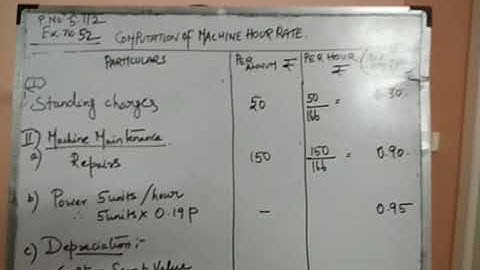 P.No 5.112
Ex no.52
COMPUTATION OF MACHINE HOUR RATE.
PARTICULARS
PER ANNUM ₹
PER HOUR ₹
(I)
Standing charges 50 50/166 = 0.30
II) Machine Maintenance
a) Repairs 150 150/166 = 0.90
b) Power 5units/hour
∴ 5units x 0.19p – 0.95
c) Depreciation:-
Value